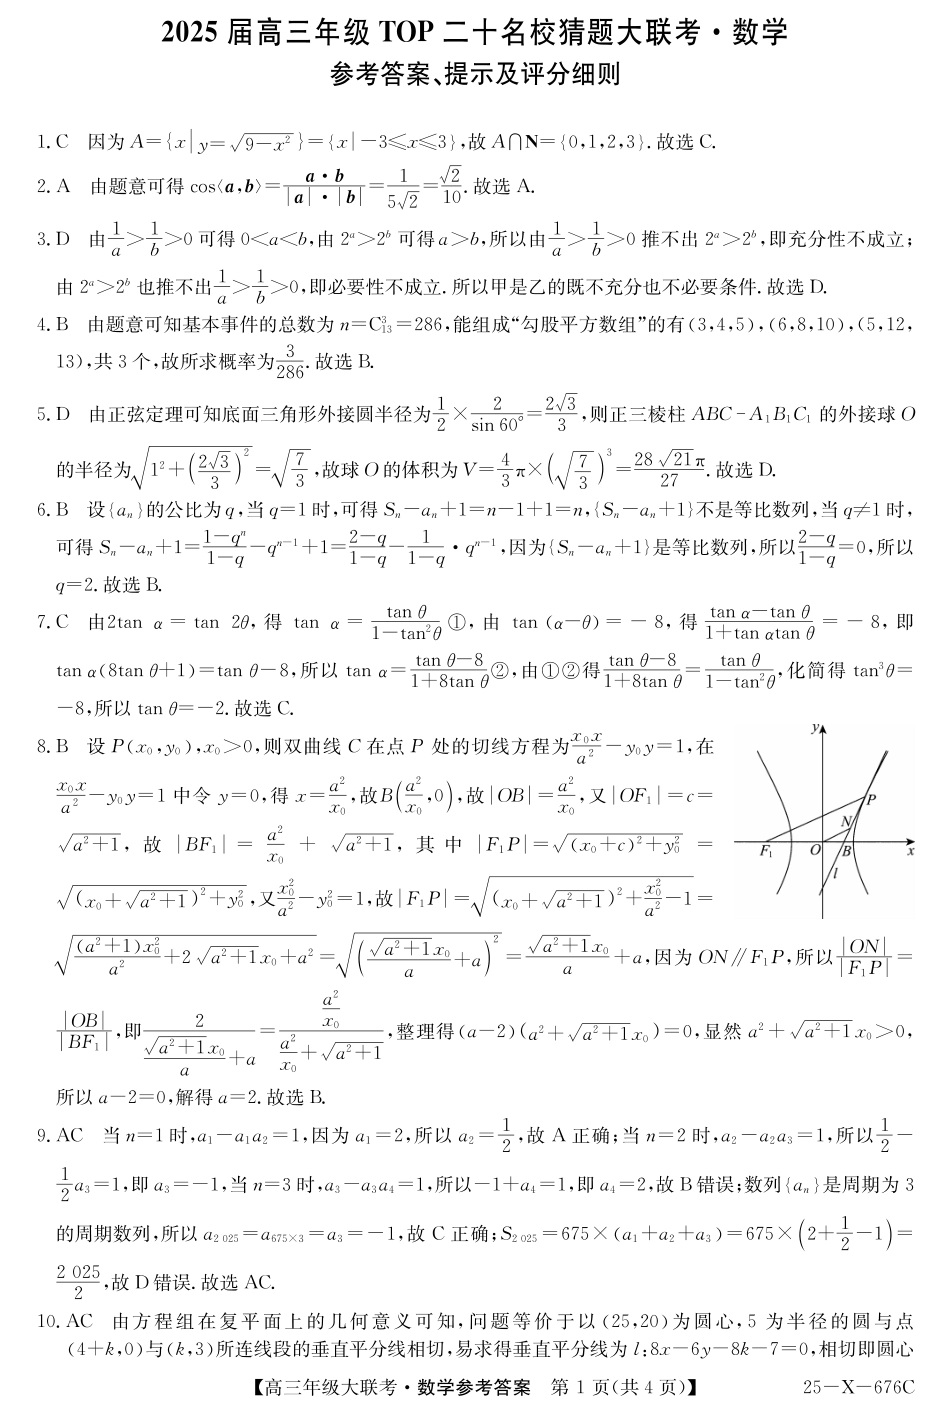 2025 届高三年级 TOP 二十名校猜题大联考·数学
参考答案、提示及评分细则
1. C　因为 A={x|y=√(9-x²)}={x|-3≤x≤3},故 A∩N={0,1,2,3}. 故选 C.
2. A　由题意可得 cos⟨a,b⟩=(a·b)/(|a|·|b|)=1/(5√2)=√2/10. 故选 A.
3. D　由 1/a>1/b>0 可得 0<a<b,由 2ᵃ>2ᵇ 可得 a>b,所以由 1/a>1/b>0 推不出 2ᵃ>2ᵇ,即充分性不成立;
由 2ᵃ>2ᵇ 也推不出 1/a>1/b>0,即必要性不成立. 所以甲是乙的既不充分也不必要条件. 故选 D.
4. B　由题意可知基本事件的总数为 n=C₁₃³=286,能组成“勾股平方数组”的有(3,4,5),(6,8,10),(5,12,
13),共 3 个,故所求概率为 3/286. 故选 B.
5. D　由正弦定理可知底面三角形外接圆半径为 1/2×2/sin 60°=2√3/3,则正三棱柱 ABC-A₁B₁C₁ 的外接球 O
的半径为 √(1²+(2√3/3)²)=√(7/3),故球 O 的体积为 V=4/3π×(√(7/3))³=28√21π/27. 故选 D.
6. B　设{aₙ}的公比为 q,当 q=1 时,可得 Sₙ-aₙ+1=n-1+1=n,{Sₙ-aₙ+1}不是等比数列,当 q≠1 时,
可得 Sₙ-aₙ+1=(1-qⁿ)/(1-q)-qⁿ⁻¹+1=(2-q)/(1-q)-1/(1-q)·qⁿ⁻¹,因为{Sₙ-aₙ+1}是等比数列,所以(2-q)/(1-q)=0,所以
q=2. 故选 B.
7. C　由2tan α=tan 2θ,得 tan α=tan θ/(1-tan²θ)①,由 tan(α-θ)=-8,得(tan α-tan θ)/(1+tan αtan θ)=-8,即
tan α(8tan θ+1)=tan θ-8,所以 tan α=(tan θ-8)/(1+8tan θ)②,由①②得(tan θ-8)/(1+8tan θ)=tan θ/(1-tan²θ),化简得 tan³θ=
-8,所以 tan θ=-2. 故选 C.
8. B　设 P(x₀,y₀),x₀>0,则双曲线 C 在点 P 处的切线方程为 x₀x/a²-y₀y=1,在
x₀x/a²-y₀y=1 中令 y=0,得 x=a²/x₀,故B(a²/x₀,0),故|OB|=a²/x₀,又|OF₁|=c=
√(a²+1),故 |BF₁|=a²/x₀+√(a²+1),其中 |F₁P|=√((x₀+c)²+y₀²)=
√((x₀+√(a²+1))²+y₀²),又x₀²/a²-y₀²=1,故|F₁P|=√((x₀+√(a²+1))²+x₀²/a²-1)=
√((a²+1)x₀²/a²+2√(a²+1)x₀+a²)=√((√(a²+1)x₀/a+a)²)=√(a²+1)x₀/a+a,因为 ON∥F₁P,所以|ON|/|F₁P|=
|OB|/|BF₁|,即 2/(√(a²+1)x₀/a+a)=(a²/x₀)/(a²/x₀+√(a²+1)),整理得(a-2)(a²+√(a²+1)x₀)=0,显然 a²+√(a²+1)x₀>0,
所以 a-2=0,解得 a=2. 故选 B.
y
P
N
F₁
O
B
x
l
9. AC　当 n=1 时,a₁-a₁a₂=1,因为 a₁=2,所以 a₂=1/2,故 A 正确;当 n=2 时,a₂-a₂a₃=1,所以1/2-
1/2a₃=1,即 a₃=-1,当 n=3 时,a₃-a₃a₄=1,所以-1+a₄=1,即 a₄=2,故 B 错误;数列{aₙ}是周期为 3
的周期数列,所以 a₂ ₀₂₅=a₆₇₅ₓ₃=a₃=-1,故 C 正确;S₂ ₀₂₅=675×(a₁+a₂+a₃)=675×(2+1/2-1)=
2 025/2,故 D 错误. 故选 AC.
10. AC　由方程组在复平面上的几何意义可知,问题等价于以(25,20)为圆心,5 为半径的圆与点
(4+k,0)与(k,3)所连线段的垂直平分线相切,易求得垂直平分线为 l:8x-6y-8k-7=0,相切即圆心
【高三年级大联考·数学参考答案　第 1 页(共 4 页)】
25-X-676C